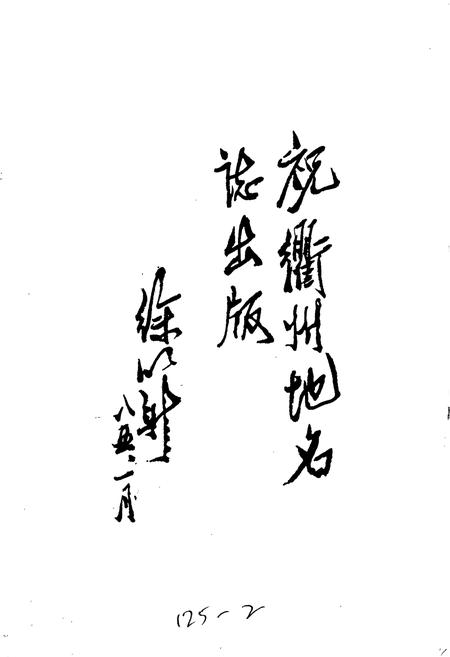 祝衢州地名
誌出版
徐以
八五、一月
125-2